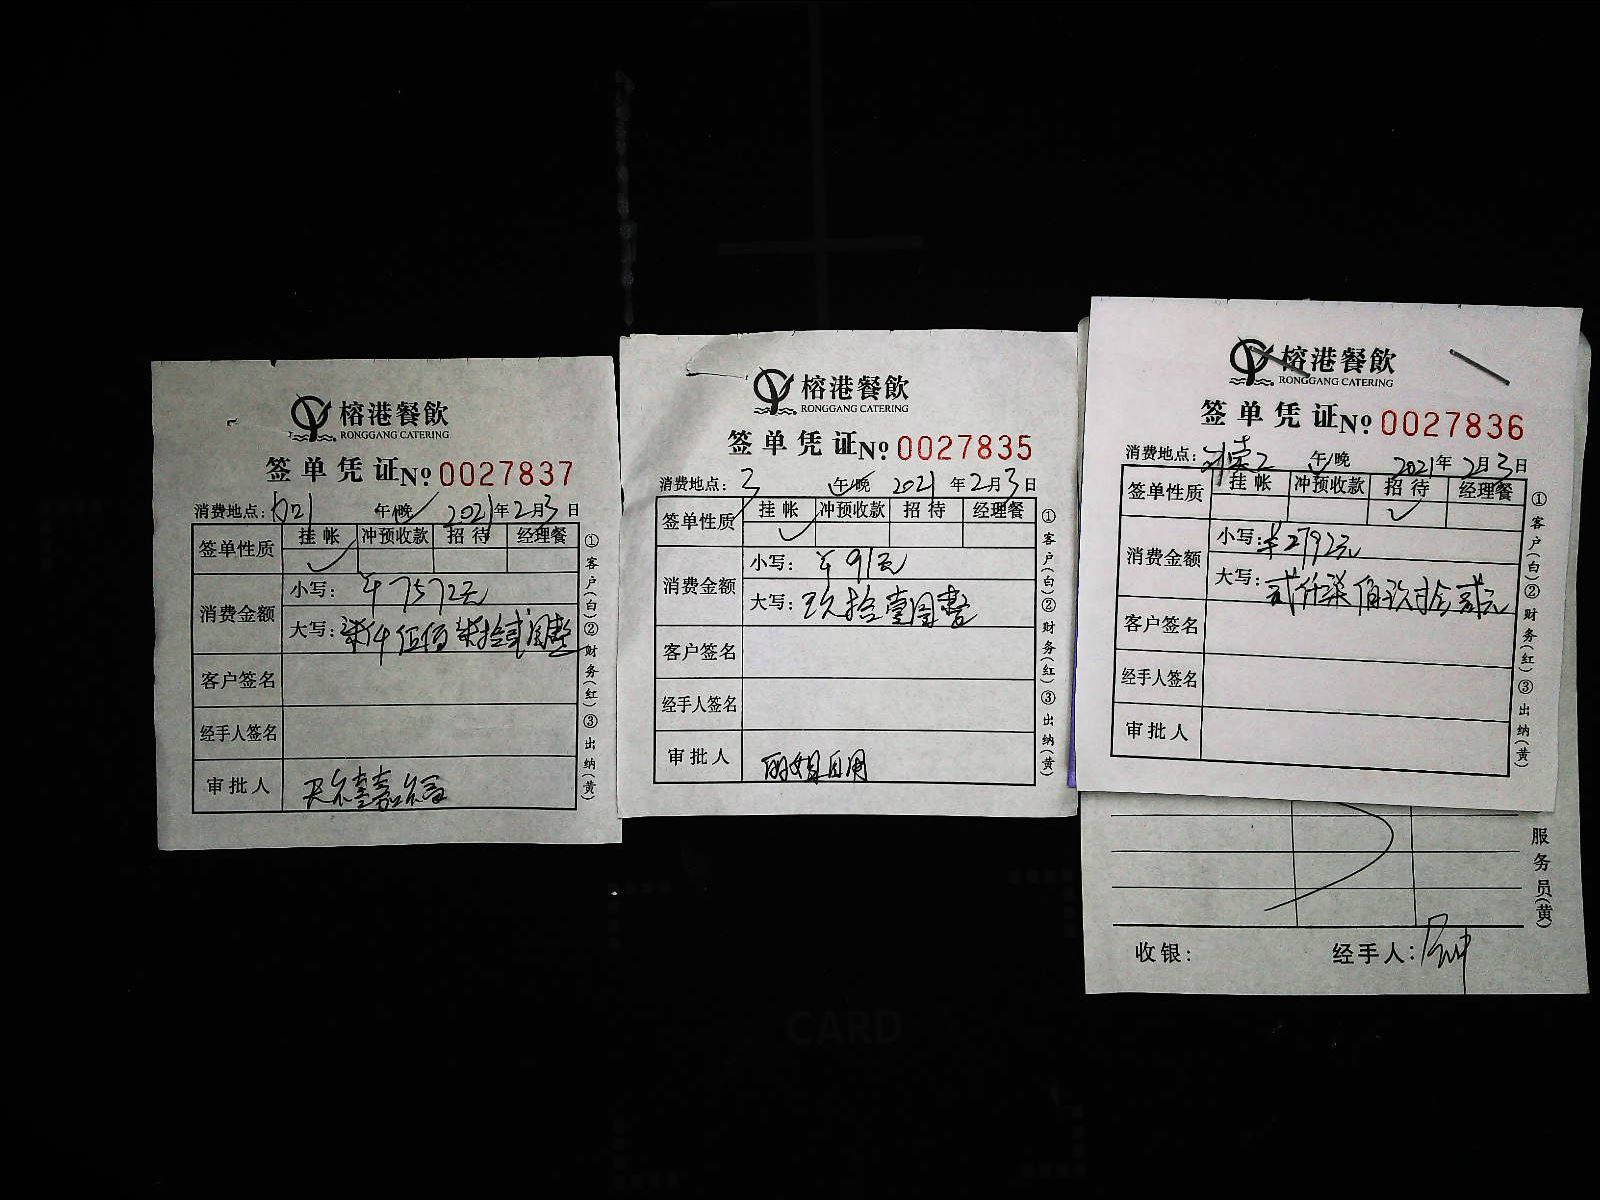 榕港餐飲
RONGGANG CATERING
签单凭证No 0027837
消费地点: 午/晚 2021年2月3日
签单性质 挂帐 冲预收款 招待 经理餐
✓
消费金额 小写: ¥7572元
大写: 柒仟伍佰柒拾贰圆整
客户签名
经手人签名
审批人
①客户(白)②财务(红)③出纳(黄)
榕港餐飲
RONGGANG CATERING
签单凭证No 0027835
消费地点: 3 午/晚 2021年2月3日
签单性质 挂帐 冲预收款 招待 经理餐
✓
消费金额 小写: ¥91元
大写: 玖拾壹圆整
客户签名
经手人签名
审批人 丽姐自用
①客户(白)②财务(红)③出纳(黄)
榕港餐飲
RONGGANG CATERING
签单凭证No 0027836
消费地点: 午/晚 2021年2月3日
签单性质 挂帐 冲预收款 招待 经理餐
✓
消费金额 小写: ¥2792元
大写: 贰仟柒佰玖拾贰元
客户签名
经手人签名
审批人
①客户(白)②财务(红)③出纳(黄)
服务员(黄)
收银: 经手人:
CARD